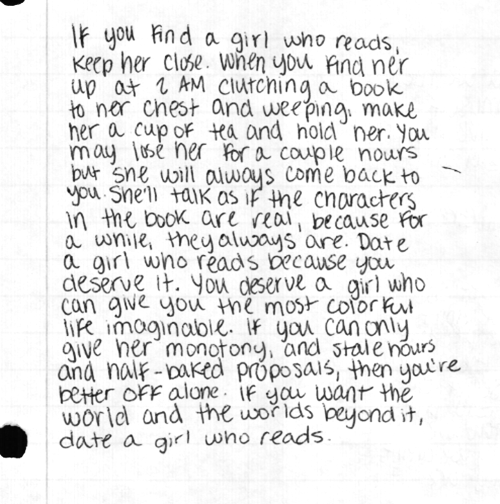 If you find a girl who reads,
keep her close. When you find her
up at 2 AM clutching a book
to her chest and weeping, make
her a cup of tea and hold her. You
may lose her for a couple hours
but she will always come back to
you. She'll talk as if the characters
in the book are real, because for
a while, they always are. Date
a girl who reads because you
deserve it. You deserve a girl who
can give you the most colorful
life imaginable. If you can only
give her monotony, and stale hours
and half-baked proposals, then you're
better off alone. If you want the
world and the worlds beyond it,
date a girl who reads.